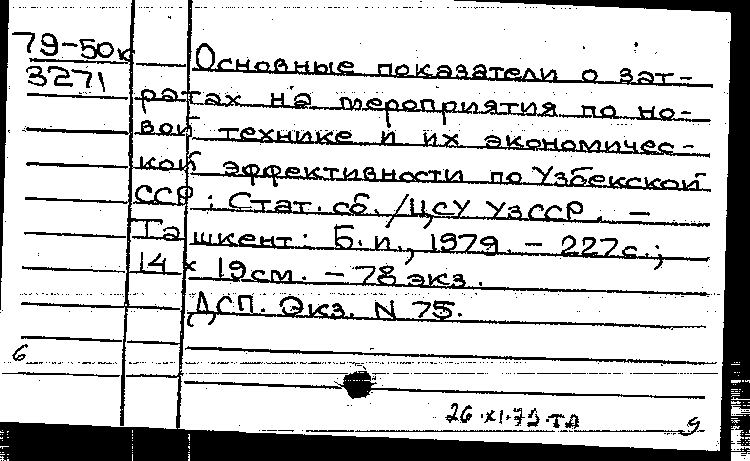 79-50к
3271
Основные показатели о зат-
ратах на мероприятия по но-
вой технике и их экономичес-
кой эффективности по Узбекской
ССР: Стат. сб. /ЦСУ УзССР. —
Ташкент: Б.и., 1979. - 227с.;
14 × 19см. - 78 экз.
ДСП. Экз. N 75.
6
26.XI.79.
9